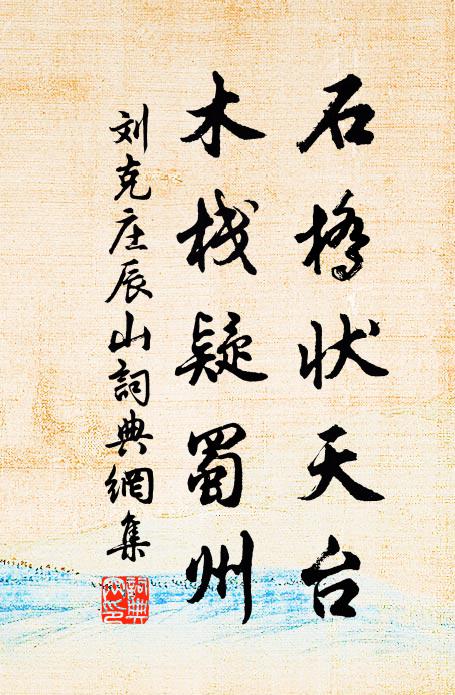 石橋状天台
木栈疑蜀州
刘克庄辰山詞典網集